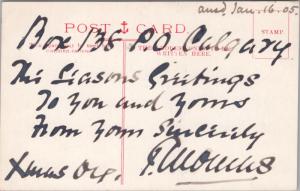 ansd Jan. 16. 05
POST CARD
STAMP
Box 136 P.O Calgary
WRITTEN HERE.
The Seasons Greetings
To You and Yours
From Yours Sincerely
Xmas 04.